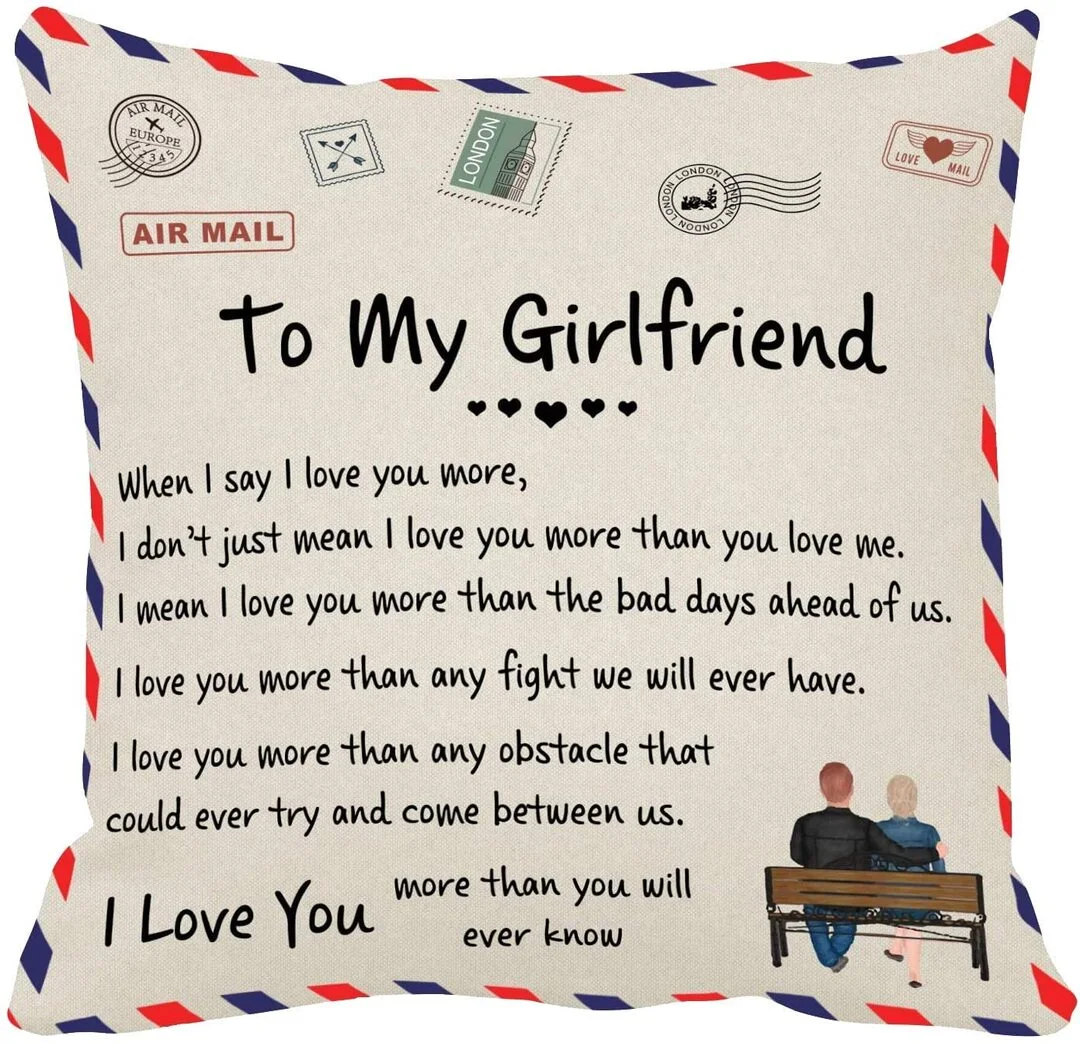 AIR MAIL
EUROPE
12345
LONDON
LONDON LONDON LONDON LONDON
LOVE
MAIL
AIR MAIL
To My Girlfriend
When I say I love you more,
I don't just mean I love you more than you love me.
I mean I love you more than the bad days ahead of us.
I love you more than any fight we will ever have.
I love you more than any obstacle that
could ever try and come between us.
I Love You
more than you will
ever know